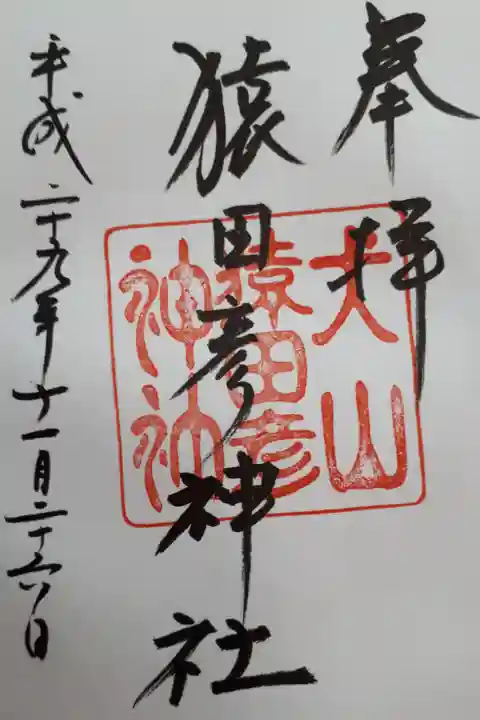 奉拝
猿田彦神社
平成二十九年十一月二十六日
犬山
猿田彦
神社